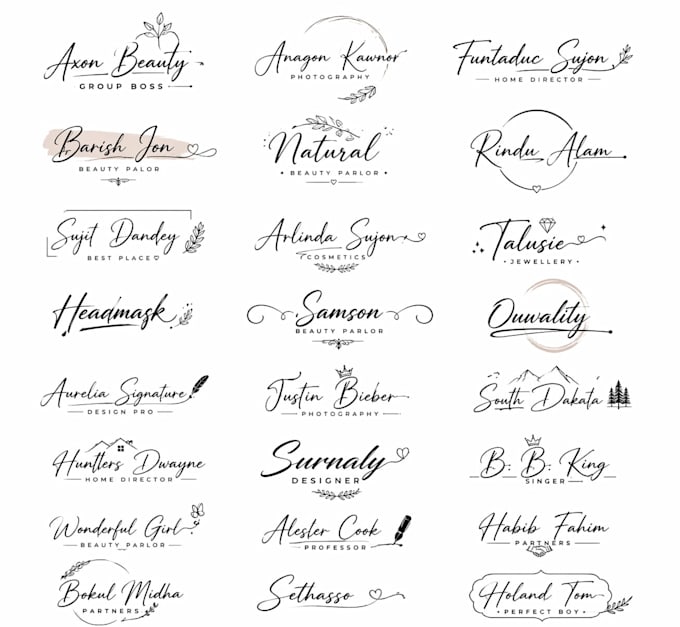 Axon Beauty
GROUP BOSS
Anagon Kawnor
PHOTOGRAPHY
Funtaduc Sujon
HOME DIRECTOR
Barish Jon
BEAUTY PALOR
Natural
• BEAUTY PARLOR •
Rindu Alam
Sujit Dandey
BEST PLACE
Arlinda Sujon
COSMETICS
Talusie
• JEWELLERY •
Headmask
Samson
BEAUTY PARLOR
Ouwality
Aurelia Signature
DESIGN PRO
Justin Bieber
PHOTOGRAPHY
South Dakata
Huntlers Dwayne
HOME DIRECTOR
Surnaly
DESIGNER
B: B: King
SINGER
Wonderful Girl
BEAUTY PARLOR
Alesler Cook
PROFESSOR
Habib Fahim
PARTNERS
Bokul Midha
PARTNERS
Sethasso
Holand Tom
• PERFECT BOY •